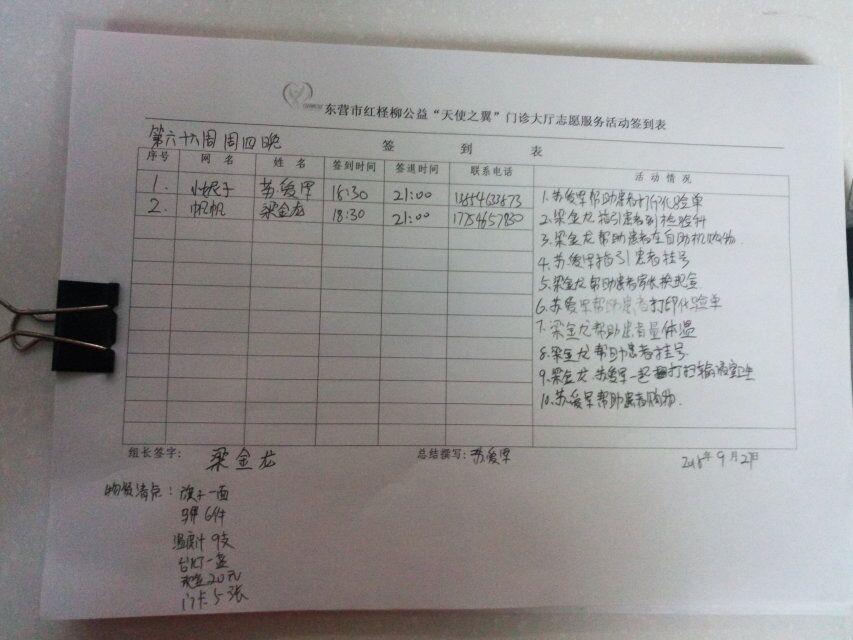 东营市红柽柳公益“天使之翼”门诊大厅志愿服务活动签到表
第六十六周 周四晚
签 到 表
序号 网名 姓名 签到时间 签退时间 联系电话 活动情况
1. 苏爱军 18:30 21:00
2. 帆帆 梁金龙 18:30 21:00 17754657830
1.苏爱军帮助患者打印化验单
2.梁金龙指引患者到检验科
3.梁金龙帮助患者在自助机购物.
4.苏爱军指引患者挂号
5.梁金龙帮助患者家长换现金
6.苏爱军帮助患者打印化验单
7.梁金龙帮助患者量体温
8.梁金龙帮助患者挂号
9.梁金龙.苏爱军一起打扫输液室卫生
10.苏爱军帮助患者购物.
组长签字: 梁金龙 总结撰写: 苏爱军 2018年9月27日
物资清点: 旗子一面
马甲6件
温度计9支
台灯一盏
现金20元
门卡5张